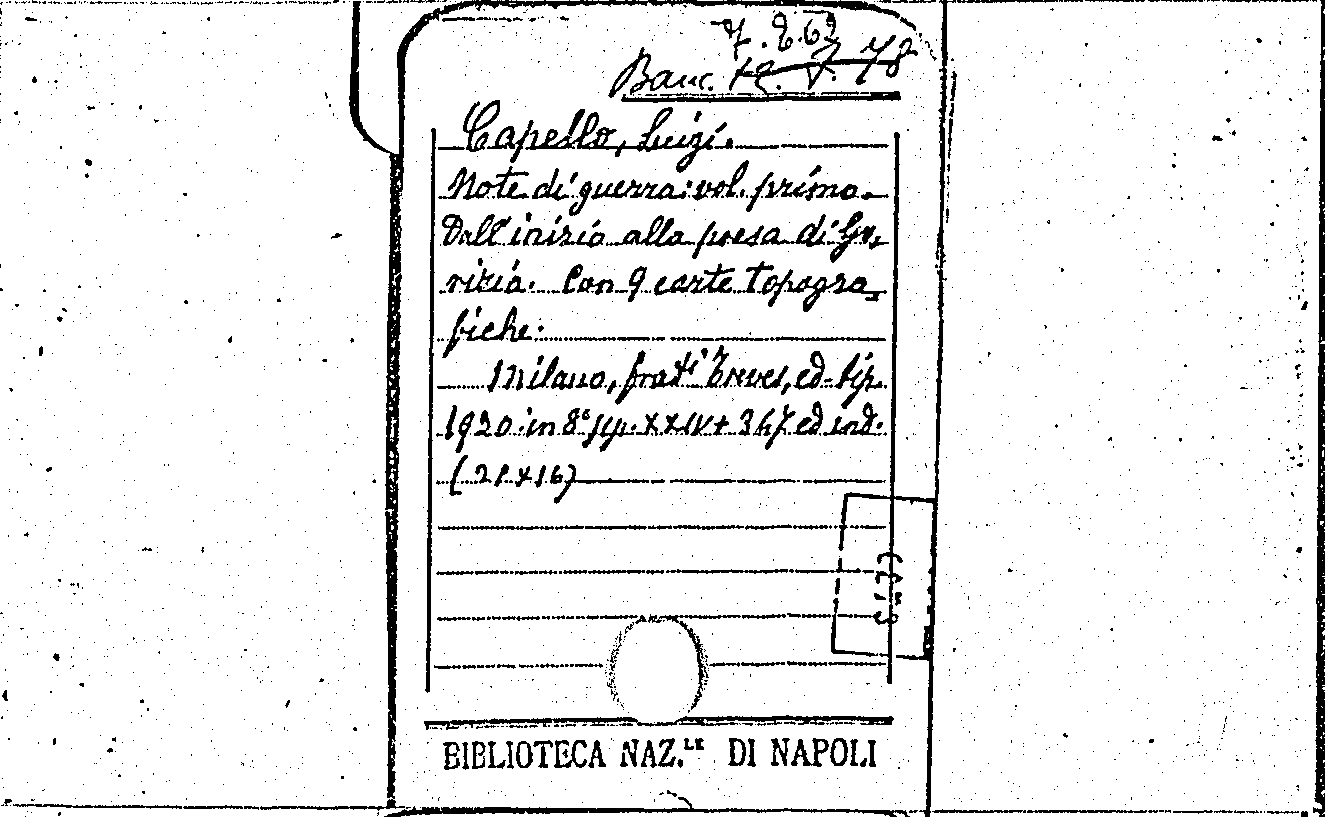 7. E. 62
Banc. 12. F. 78
Capello, Luigi.
Note di guerra: vol. primo.
Dall'inizio alla presa di Go-
rizia. Con 9 carte topogra-
fiche.
Milano, frat.i Treves, ed-tip.
1920. in 8° pp. XXIV + 347 ed ind.
(21 x 16)
BIBLIOTECA NAZ.LE DI NAPOLI